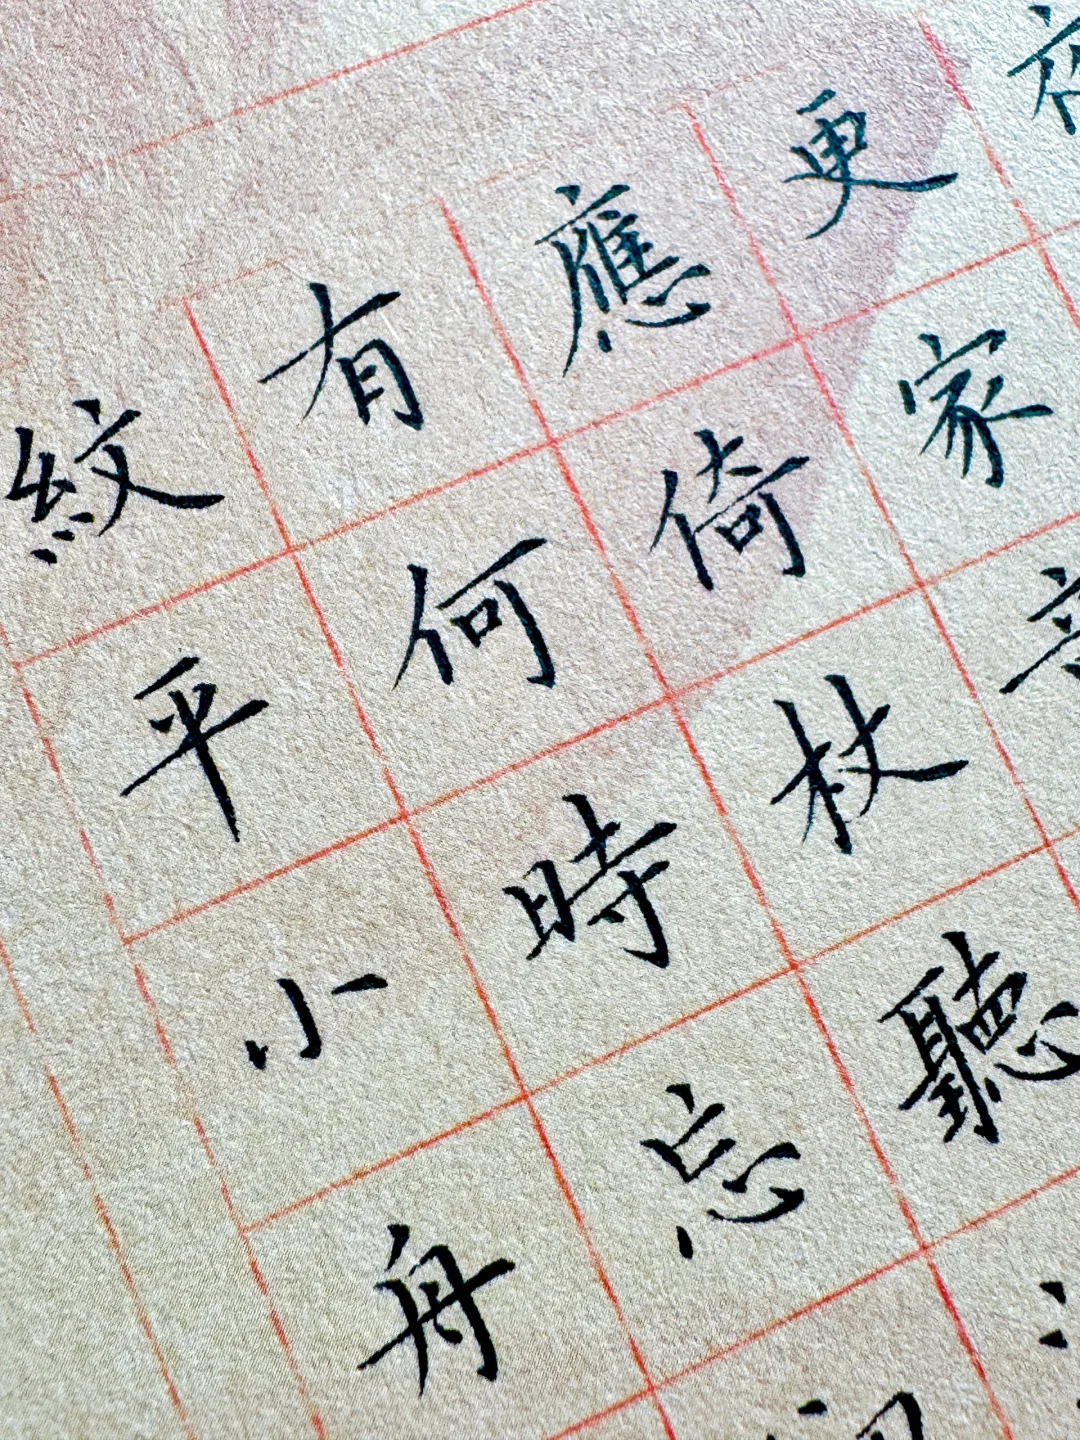 更家
應倚杖聽
有何時忘
紋平小舟